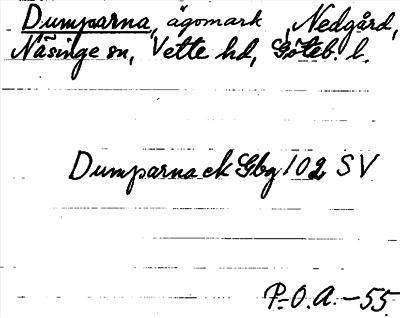 Dumparna, ägomark, Nedgård,
Näsinge sn, Vette hd, Göteb. l.
Dumparna ek Gbg 102 SV
P.-O.A.-55